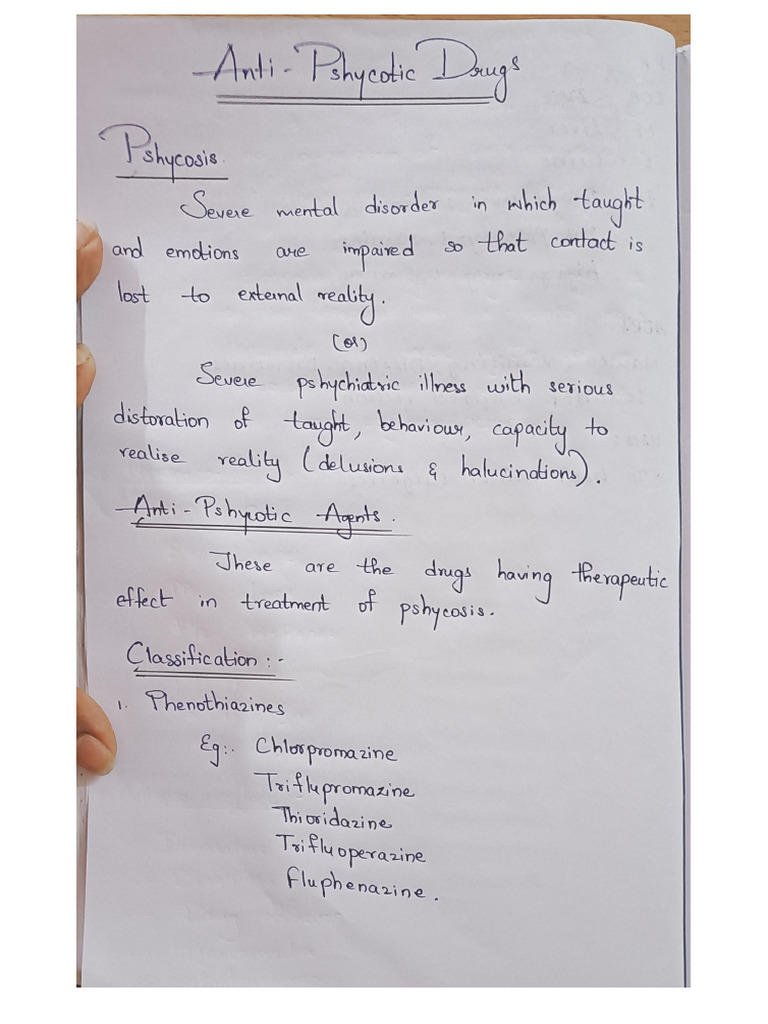 Anti-Pshycotic Drugs
Pshycosis.
Severe mental disorder in which taught
and emotions are impaired so that contact is
lost to external reality.
(or)
Severe pshychiatric illness with serious
distoration of taught, behaviour, capacity to
realise reality (delusions & halucinations).
Anti-Pshycotic Agents.
These are the drugs having therapeutic
effect in treatment of pshycosis.
Classification :-
1. Phenothiazines
Eg:. Chlorpromazine
Triflupromazine
Thioridazine
Trifluoperazine
Fluphenazine.